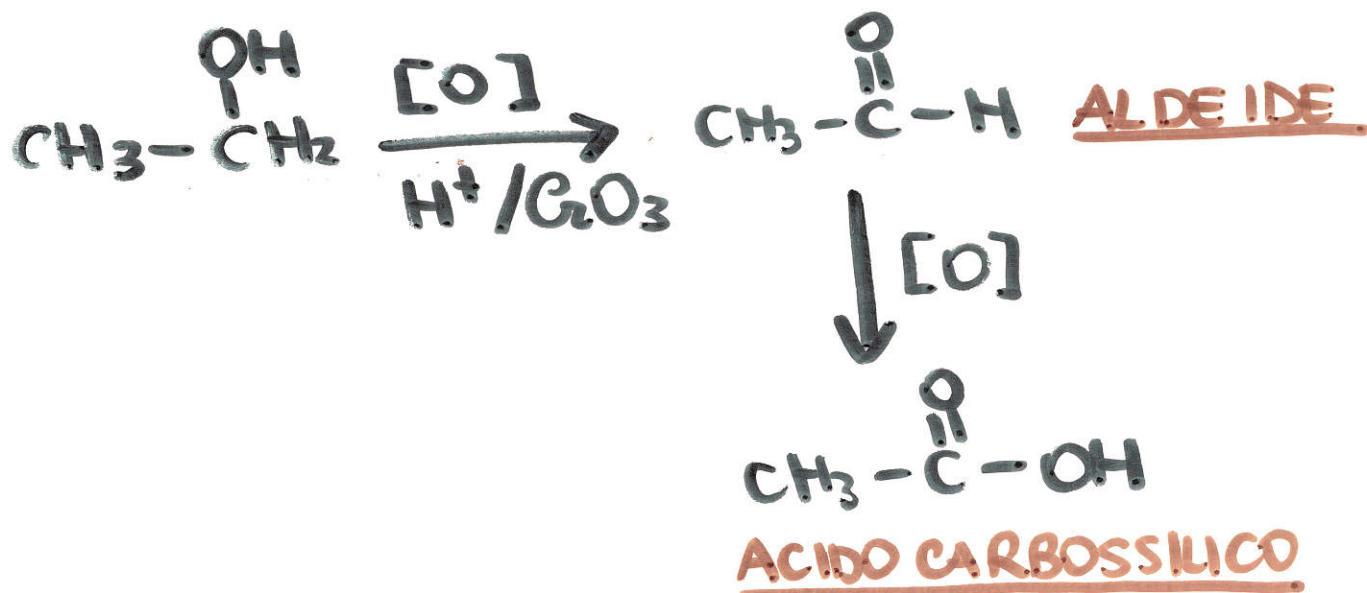 OH
CH3-CH2
[O]
H+/CrO3
O
CH3-C-H
ALDEIDE
[O]
O
CH3-C-OH
ACIDO CARBOSSILICO